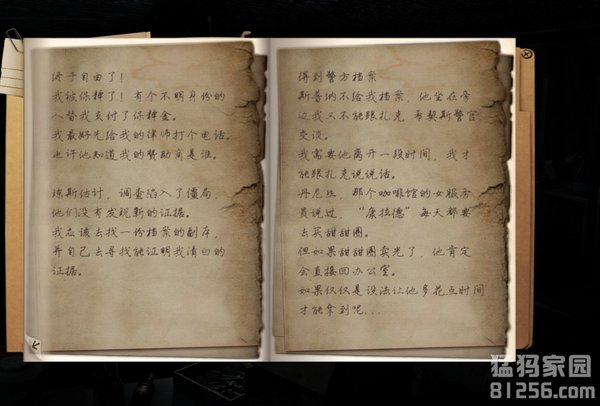 终于自由了！
我被保释了！有个不明身份的
人替我支付了保释金。
我最好先给我的律师打个电话。
也许他知道我的赞助商是谁。
琼斯估计，调查陷入了僵局，
他们没有发现新的证据。
我应该去找一份档案的副本，
并自己去寻找能证明我清白的
证据。
得到警方档案
斯普纳不给我档案，他坐在旁
边我又不能跟扎克 希契斯警官
交谈。
我需要他离开一段时间，我才
能跟扎克说说话。
丹尼丝，那个咖啡馆的女服务
员说过，“康拉德”每天都要
去买甜甜圈。
但如果甜甜圈卖光了，他肯定
会直接回办公室。
如果仅仅是设法让他多花点时间
才能拿到呢...
猛犸家园
81256.com